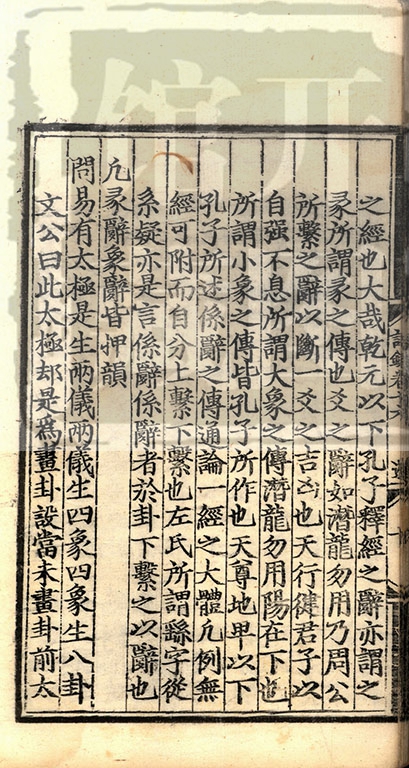 之經也大哉乾元以下孔子釋經之辭亦謂之
彖所謂彖之傳也爻之辭如潛龍勿用乃周公
所繫之辭以斷一爻之吉凶也天行健君子以
自强不息所謂大象之傳潛龍勿用陽在下也
所謂小象之傳皆孔子所作也天尊地卑以下
孔子所述係辭之傳通論一經之大體凡例無
經可附而自分上繫下繫也左氏所謂繇字從
系疑亦是言係辭係辭者於卦下繫之以辭也
凢彖辭象辭皆押韻
問易有太極是生兩儀兩儀生四象四象生八卦
文公曰此太極却是為畫卦設當未畫卦前太